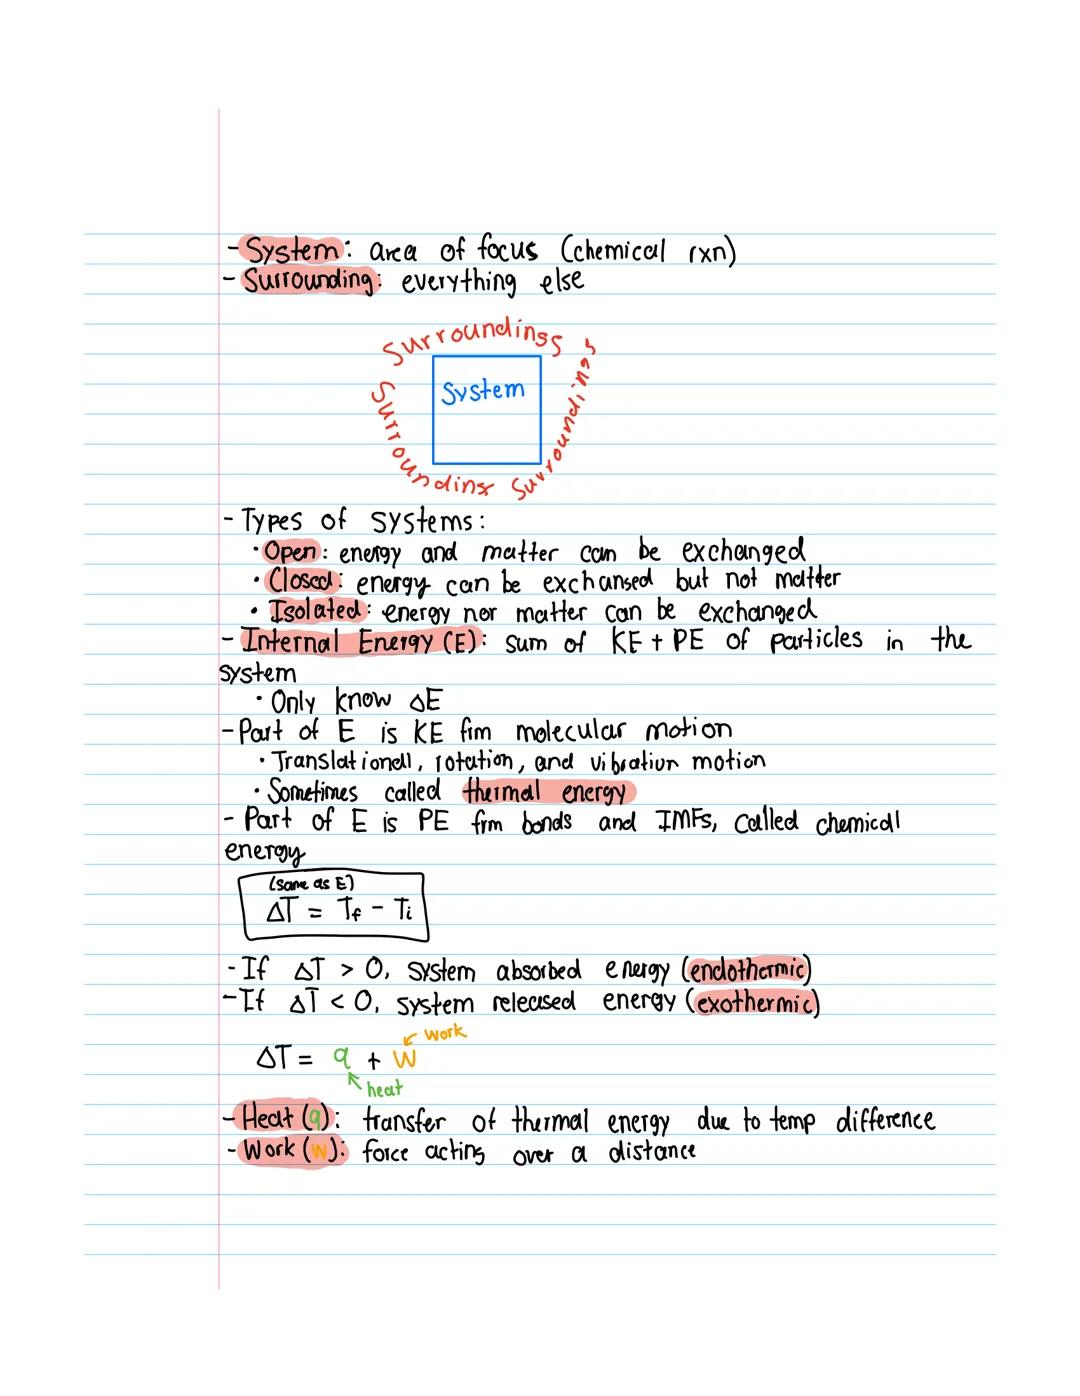 - System: area of focus (chemical rxn)
- Surrounding: everything else
Surroundings
System
Surroundings
Surroundings
Surroundings
- Types of systems:
• Open: energy and matter can be exchanged
• Closed: energy can be exchansed but not matter
• Isolated: energy nor matter can be exchanged
- Internal Energy (E): sum of KE + PE of particles in the
system
• Only know ΔE
- Part of E is KE frm molecular motion
• Translational, rotation, and vibration motion
• Sometimes called thermal energy
- Part of E is PE frm bonds and IMFs, called chemical
energy
(same as E)
ΔT = Tf - Ti
- If ΔT > 0, system absorbed energy (endothermic)
- If ΔT < 0, system released energy (exothermic)
work
ΔT = q + W
heat
- Heat (q): transfer of thermal energy due to temp difference
- Work (w): force acting over a distance